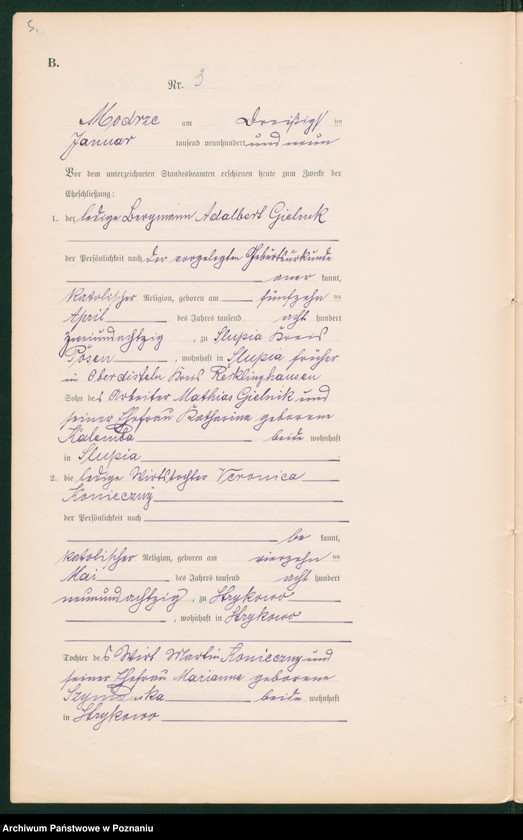 5.
B.
Nr. 3
Modrze am Dreißigsten
Januar tausend neunhundert und neun
Vor dem unterzeichneten Standesbeamten erschienen heute zum Zwecke der
Eheschließung:
1. der ledige Bergmann Adalbert Gielnik
der Persönlichkeit nach der vorgelegten Geburtsurkunde
aner kannt,
katolischer Religion, geboren am fünfzehn ten
April des Jahres tausend acht hundert
zweiundachtzig, zu Slupia Kreis
Posen, wohnhaft in Slupia früher
in Oberdisteln Kreis Recklinghausen
Sohn des Arbeiter Mathias Gielnik und
seiner Ehefrau Katharina geborene
Kalemba beide wohnhaft
in Slupia.
2. die ledige Wirtstochter Veronica
Konieczny
der Persönlichkeit nach
be kannt,
katolischer Religion, geboren am vierzehn ten
Mai des Jahres tausend acht hundert
neunundachtzig, zu Strykowo
, wohnhaft in Strykowo
Tochter des Wirt Martin Konieczny und
seiner Ehefrau Marianna geborene
beide wohnhaft
in Strykowo
Archiwum Państwowe w Poznaniu